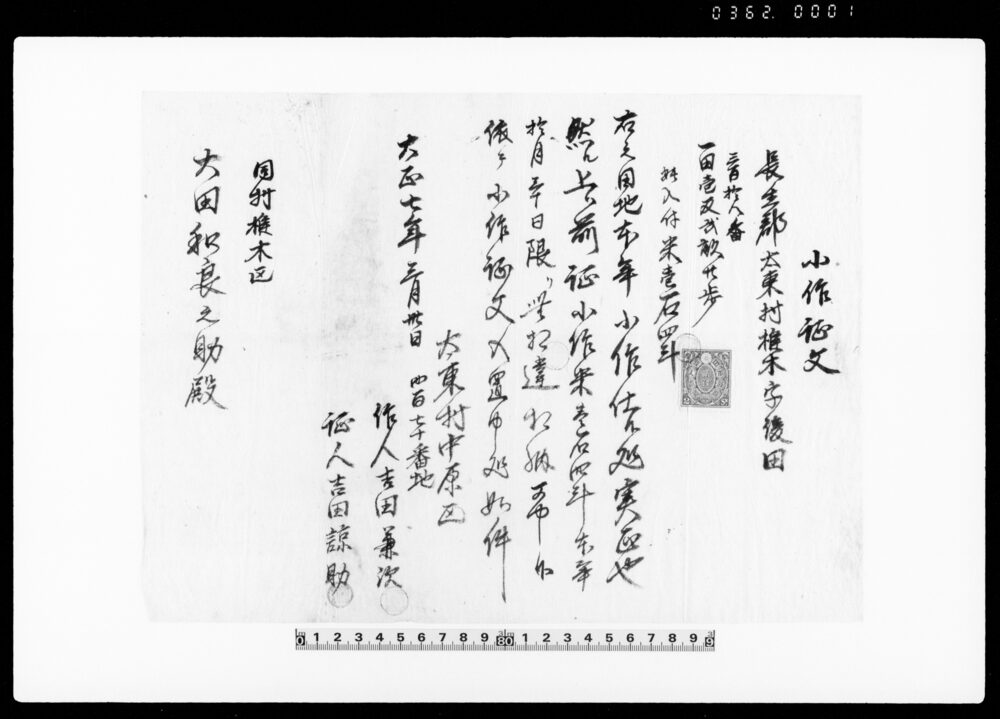 0362.0001
小作証文
長生郡太東村椎木字後田
三百拾八番
一田壱反弐畝廿歩
此入付米壱石四斗
右之田地本年小作仕候処実正也
然ル上者前証小作米壱石四斗本年
拾月三十日限リ無相違相納可申候
依テ小作証文入置申処如件
大正七年三月卅日
太東村中原区
四百七十番地
作人吉田兼次
証人吉田諒助
同村椎木区
大田和良之助殿
0 1 2 3 4 5 6 7 8 9 10 1 2 3 4 5 6 7 8 9